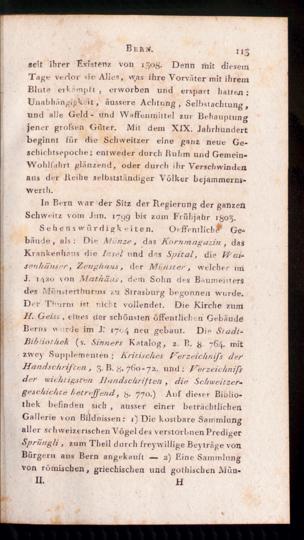 BERN. 113
seit ihrer Existenz von 1308. Denn mit diesem
Tage verlor sie Alles, was ihre Vorväter mit ihrem
Blute erkämpft, erworben und erspart hatten:
Unabhängigkeit, äussere Achtung, Selbstachtung,
und alle Geld- und Waffenmittel zur Behauptung
jener großen Güter. Mit dem XIX. Jahrhundert
beginnt für die Schweitzer eine ganz neue Ge-
schichtsepoche; entweder durch Ruhm und Gemein-
Wohlfahrt glänzend, oder durch ihr Verschwinden
aus der Reihe selbstständiger Völker bejammerns-
werth.
In Bern war der Sitz der Regierung der ganzen
Schweitz vom Jun. 1799 bis zum Frühjahr 1803.
Sehenswürdigkeiten. Oeffentliche Ge-
bäude, als: Die Münze, das Kornmagazin, das
Krankenhaus die Insel und das Spital, die Wai-
senhäuser, Zeughaus, der Münster, welcher im
J. 1420 von Mathäus, dem Sohn des Baumeisters
des Münsterthurms zu Strasburg begonnen wurde.
Der Thurm ist nicht vollendet. Die Kirche zum
H. Geist, eines der schönsten öffentlichen Gebäude
Berns wurde im J. 1704 neu gebaut. Die Stadt-
Bibliothek (s. Sinners Katalog, 2. B. 8. 764. mit
zwey Supplementen; Kritisches Verzeichniss der
Handschriften, 3. B. 8. 760-72. und: Verzeichniss
der wichtigsten Handschriften, die Schweitzer-
geschichte betreffend, 8. 770.) Auf dieser Biblio-
thek befinden sich, ausser einer beträchtlichen
Gallerie von Bildnissen: 1) Die kostbare Sammlung
aller schweizerischen Vögel des verstorbnen Prediger
Sprüngli, zum Theil durch freywillige Beyträge von
Bürgern aus Bern angekauft — 2) Eine Sammlung
von römischen, griechischen und gothischen Mün-
II. H